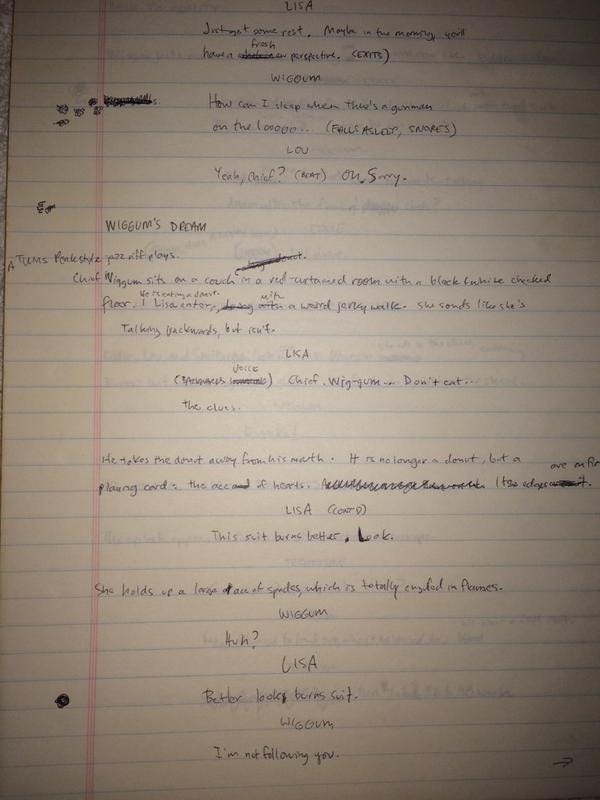 LISA
Just get some rest. Maybe in the morning, you'll
have a fresh perspective. (EXITS)
WIGGUM
How can I sleep when there's a gunman
on the looooo... (FALLS ASLEEP, SNORES)
LOU
Yeah, Chief? (BEAT) Oh. Sorry.
WIGGUM'S DREAM
A Twins Peaks style jazz riff plays.
Chief Wiggum sits on a couch in a red-curtained room with a black & white checked
floor. He is eating a donut. Lisa enters, with a weird jerky walk. She sonds like she's
Talking backwards, but isn't.
LISA
(BACKWARDS VOICE) Chief. Wig-gum... Don't eat...
the clues.
He takes the donut away from his mouth. It is no longer a donut, but a
playing card: the ace of hearts. Its edges are on fire.
LISA (CONT'D)
This suit burns better. Look.
She holds up a large ace of spades, which is totally engulfed in flames.
WIGGUM
Huh?
LISA
Better look burns suit.
WIGGUM
I'm not following you.
→